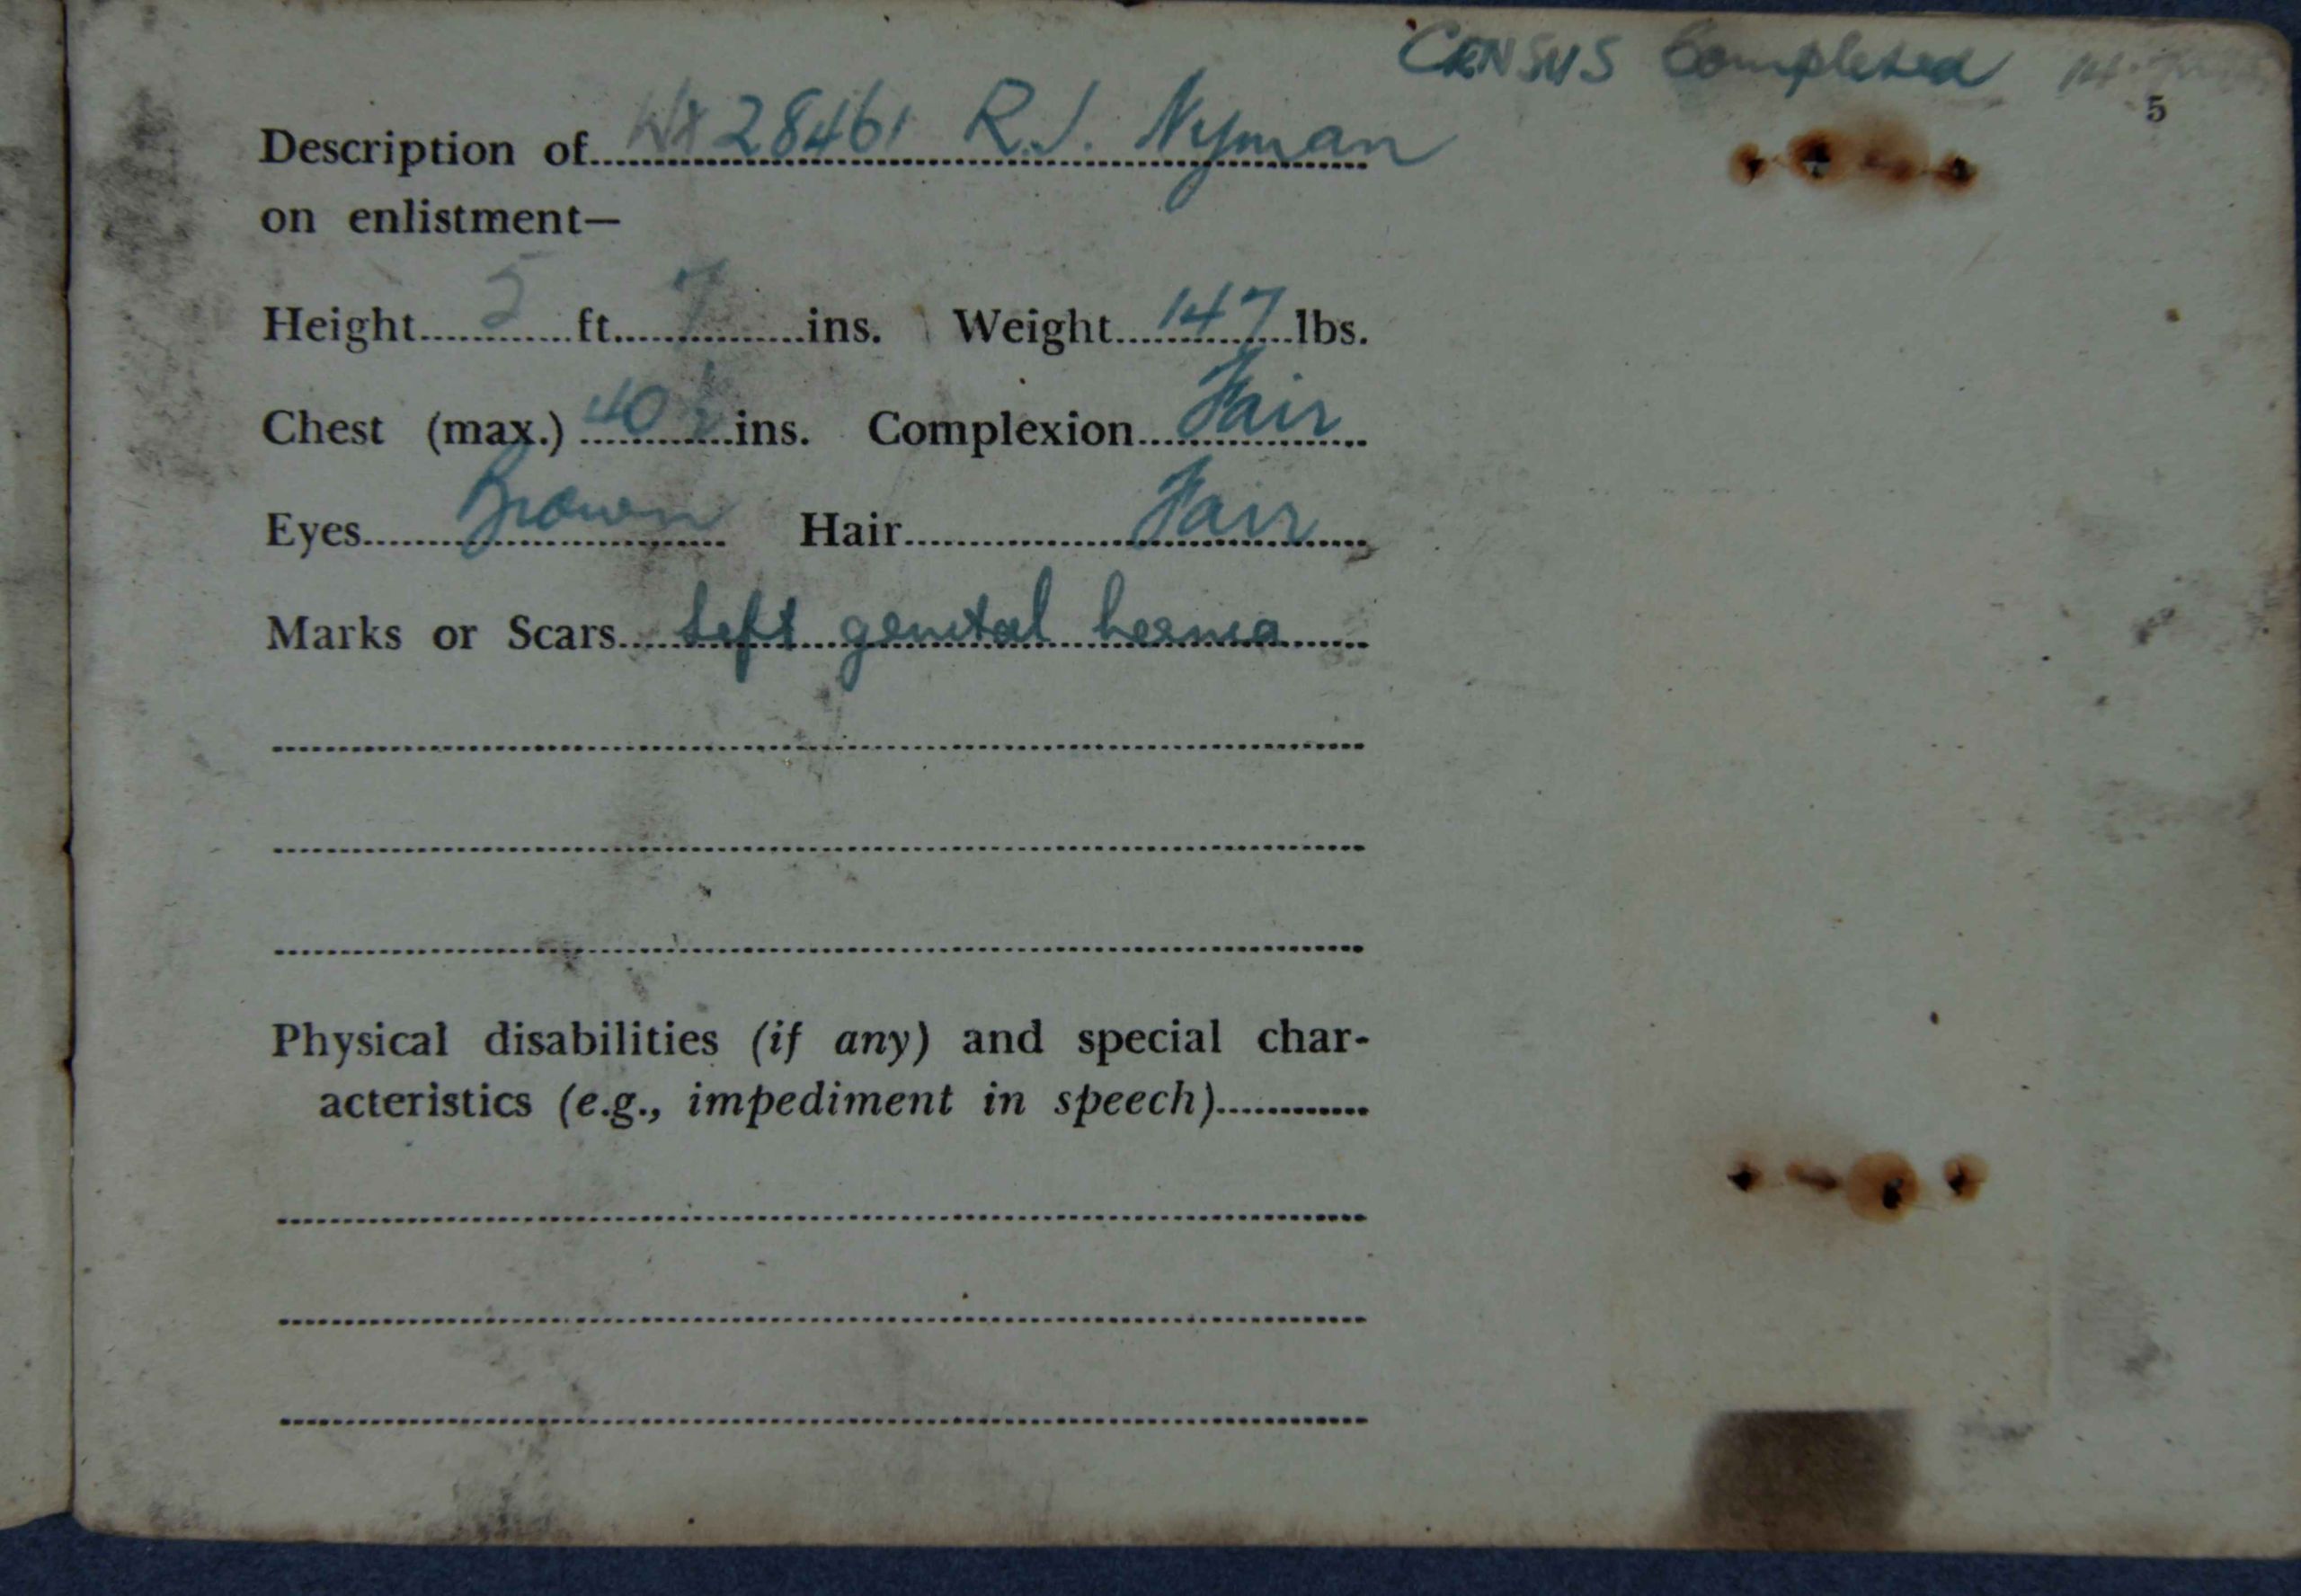 CENSUS Completed 14.
5
Description of WX 28461 R.J. Nyman
on enlistment—
Height 5 ft. 7 ins. Weight 147 lbs.
Chest (max.) 40 1/2 ins. Complexion Fair
Eyes Brown Hair Fair
Marks or Scars Left genital hernia
Physical disabilities (if any) and special char-
acteristics (e.g., impediment in speech)